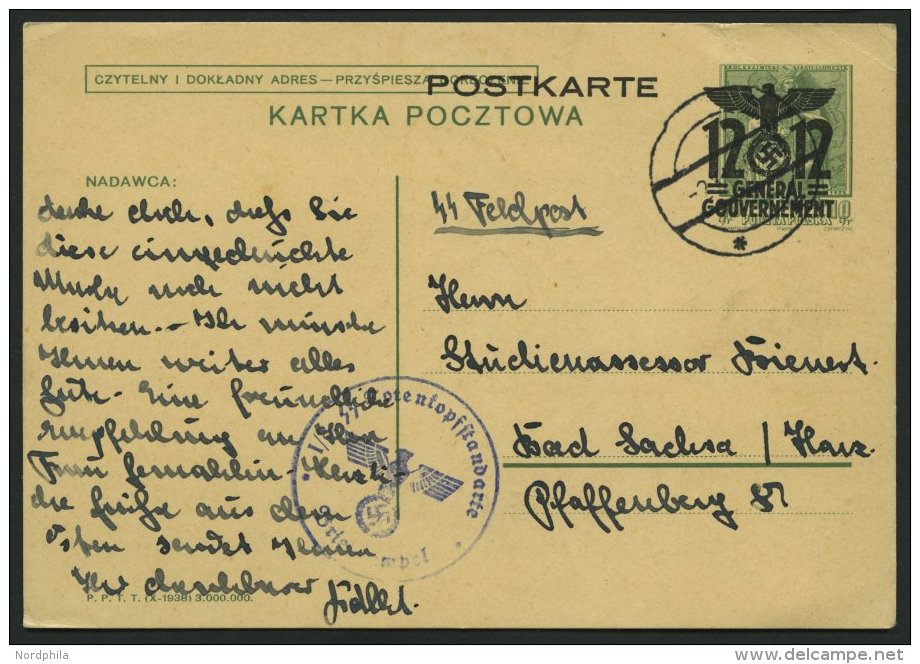 CZYTELNY I DOKŁADNY ADRES — PRZYŚPIESZA DORĘCZENIE
POSTKARTE
KARTKA POCZTOWA
12 12
GENERAL
GOUVERNEMENT
10
gr POCZTA POLSKA gr
NADAWCA:
denke doch, daß Sie
diese eingedrückte
nicht
besitzen. - Ich wünsche
Ihnen weiter alles
Gute. Eine freundliche
Empfehlung an Ihre
Frau Gemahlin. Herzli-
che Grüße aus dem
Osten sendet Ihnen
Ihr dankbarer
SS Feldpost
Herrn
Studienassessor Bienert.
Bad Sachsa / Harz
Pfaffenberg 37
SS Totenkopfstandarte
P. P. T. T. (X-1938) 3.000.000.
Nordphila
delcampe.net